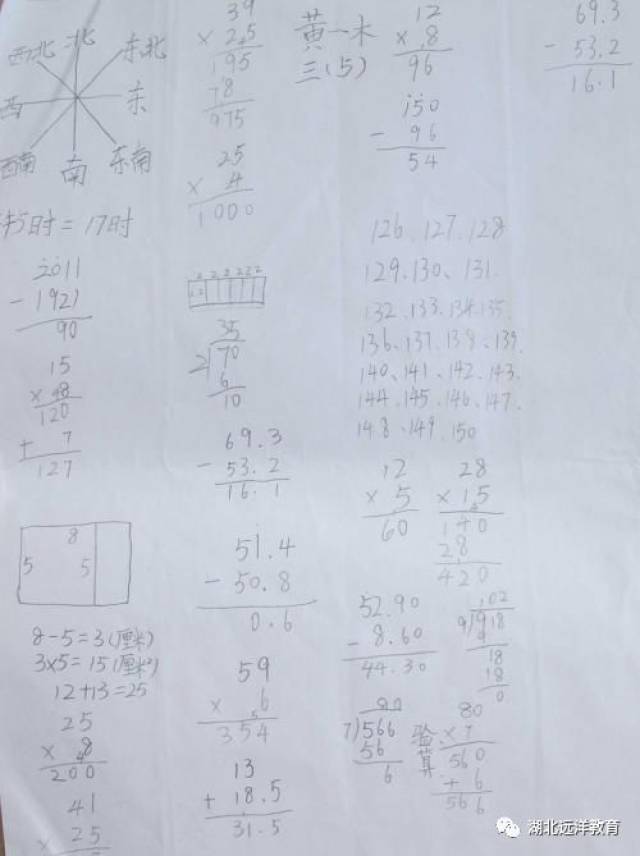 西北 北 东北
西 东
西南 南 东南
时 = 17时
2011
- 1921
90
15
× 48
120
+ 7
127
8
5 5
8-5=3(厘米)
3×5=15(厘米²)
12+13=25
25
× 8
200
41
× 25
39
× 25
195
78
975
25
× 4
1000
2 2 2 2 2 2
35
2)70
6
10
69.3
- 53.2
16.1
51.4
- 50.8
0.6
59
× 6
354
13
+ 18.5
31.5
黄一木
三(5)
12
× 8
96
150
- 96
54
126、127、128
129、130、131、
132、133、134、135、
136、137、138、139、
140、141、142、143、
144、145、146、147、
148、149、150
12
× 5
60
28
× 15
140
28
420
52.90
- 8.60
44.30
102
9)918
9
18
18
0
80
7)566
56
6
验算:
80
× 7
560
+ 6
566
69.3
- 53.2
16.1
湖北远洋教育